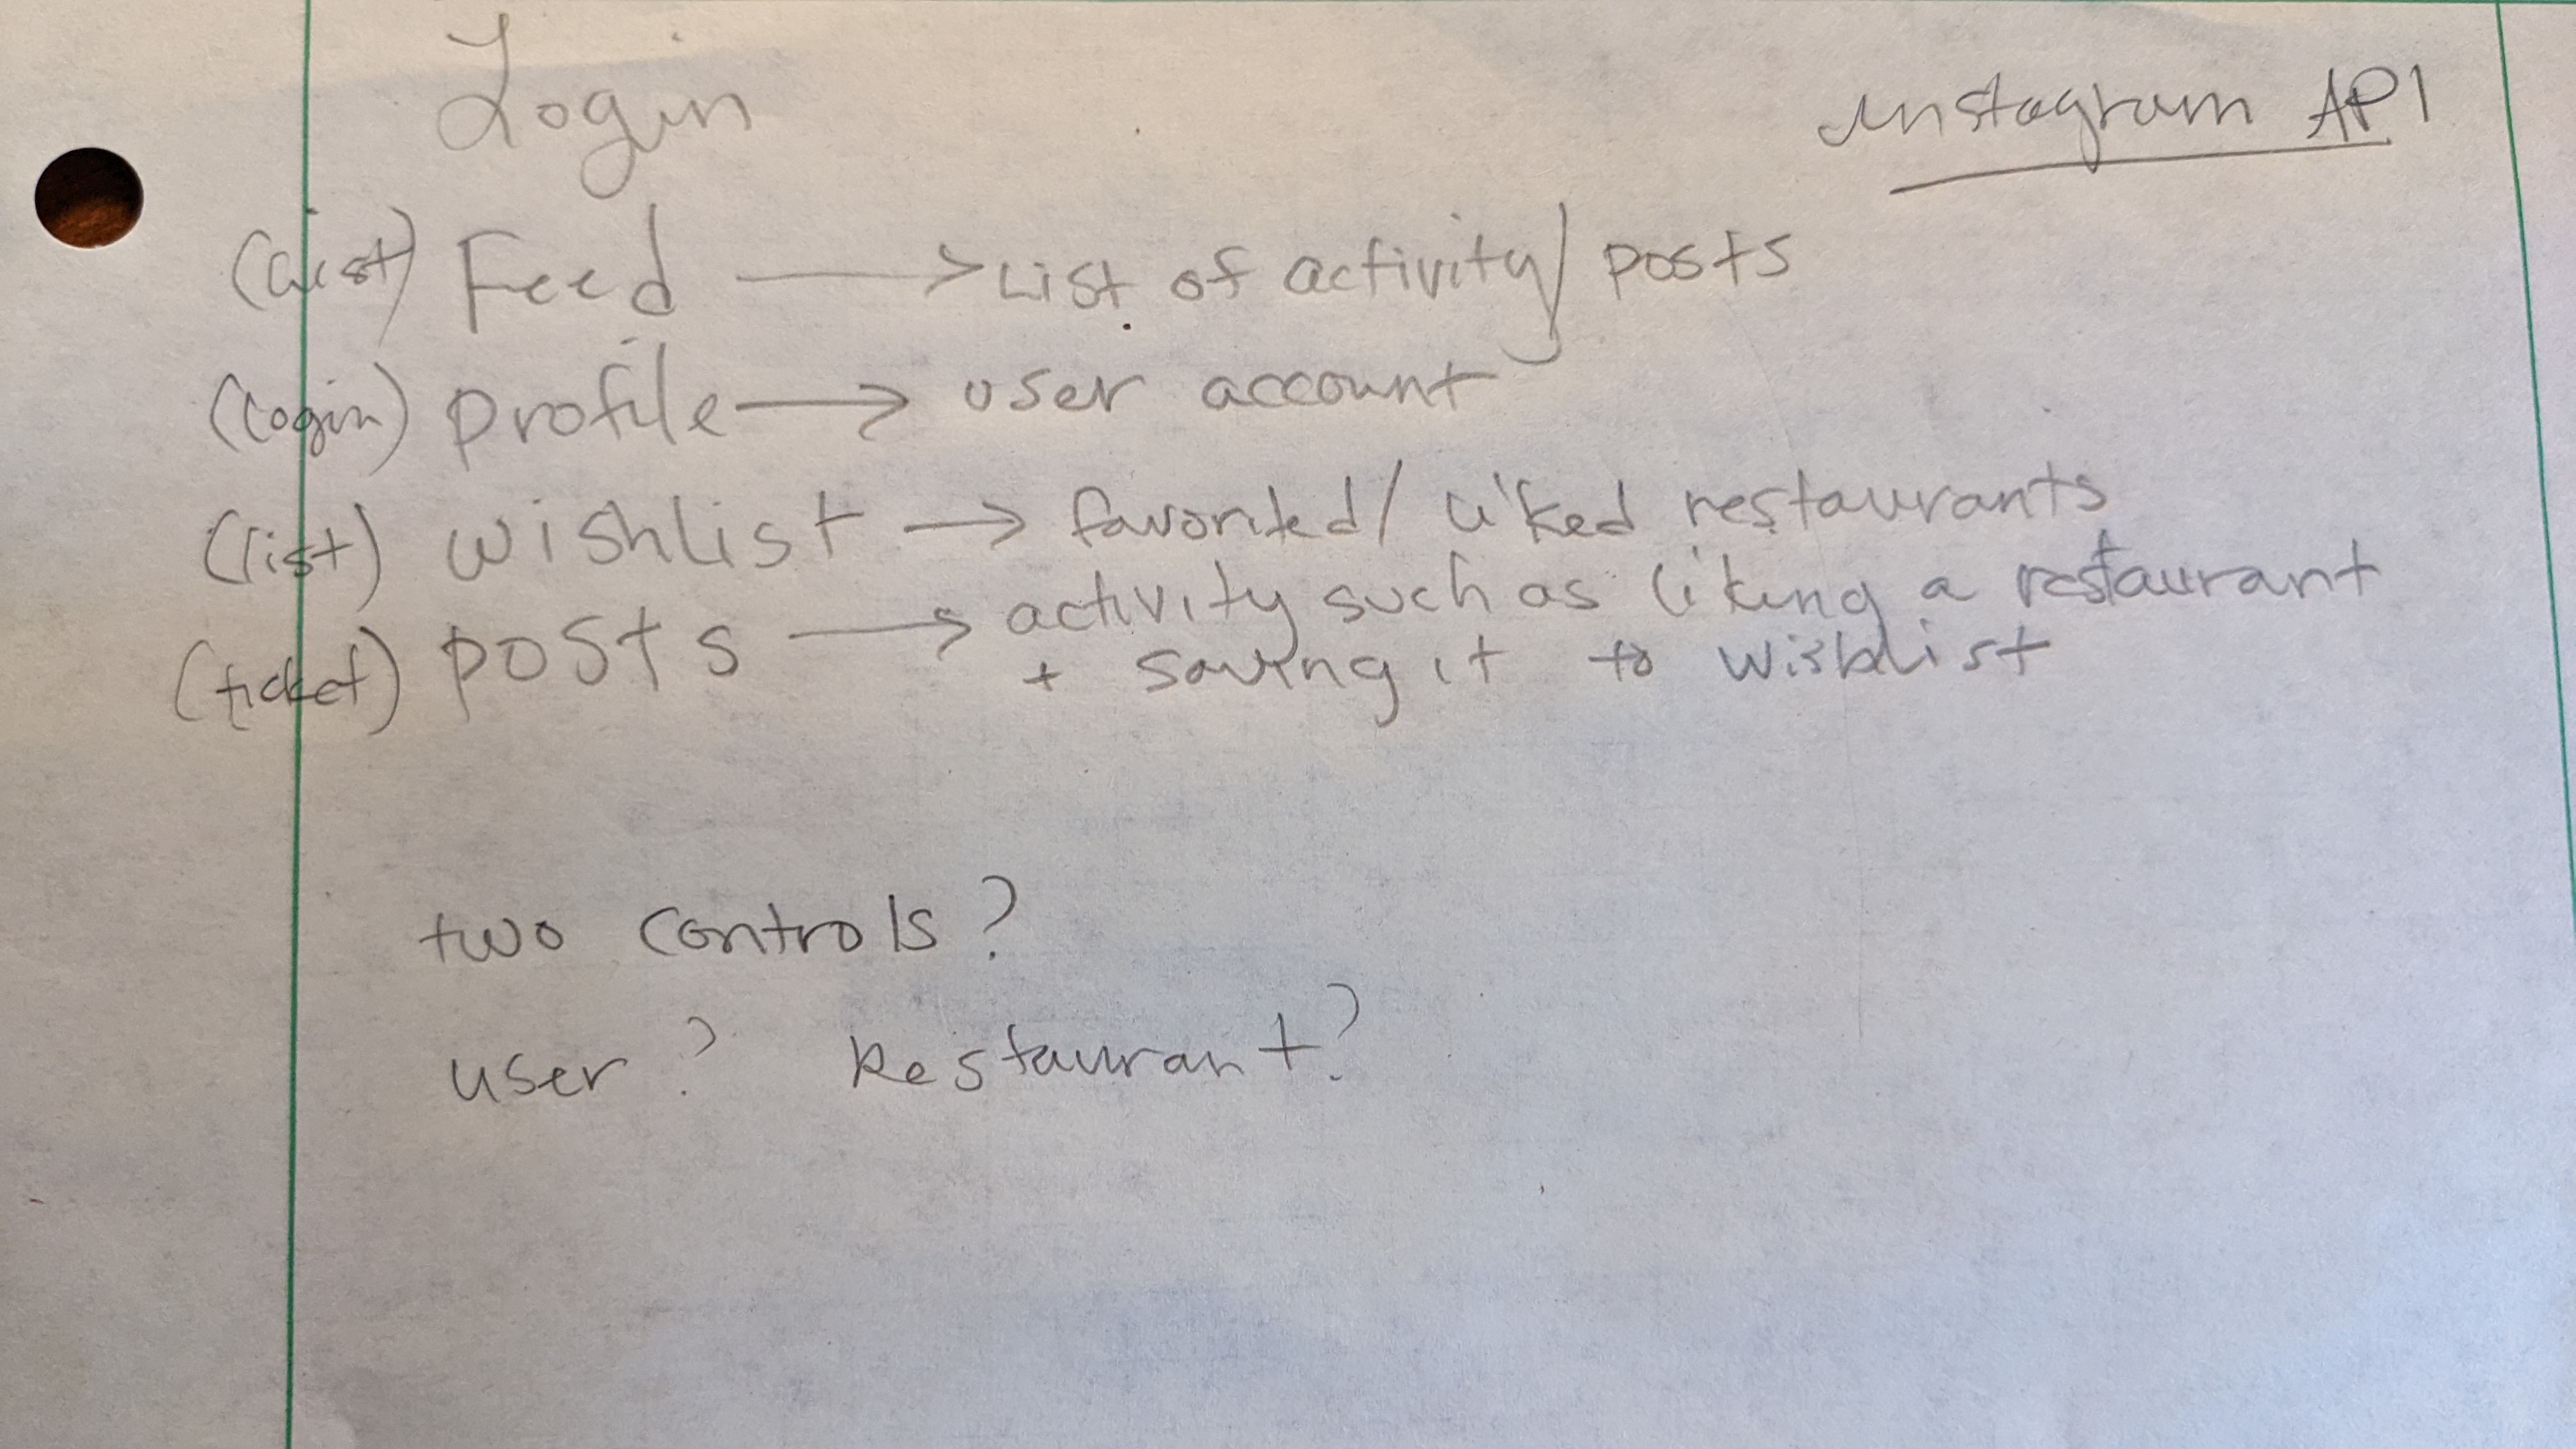 Login
Instagram API
(list) Feed → List of activity/ posts
(login) profile → user account
(list) wishlist → favorited/ liked restaurants
(ticket) posts → activity such as liking a restaurant
+ saving it to wishlist
two controls?
user? Restaurant?